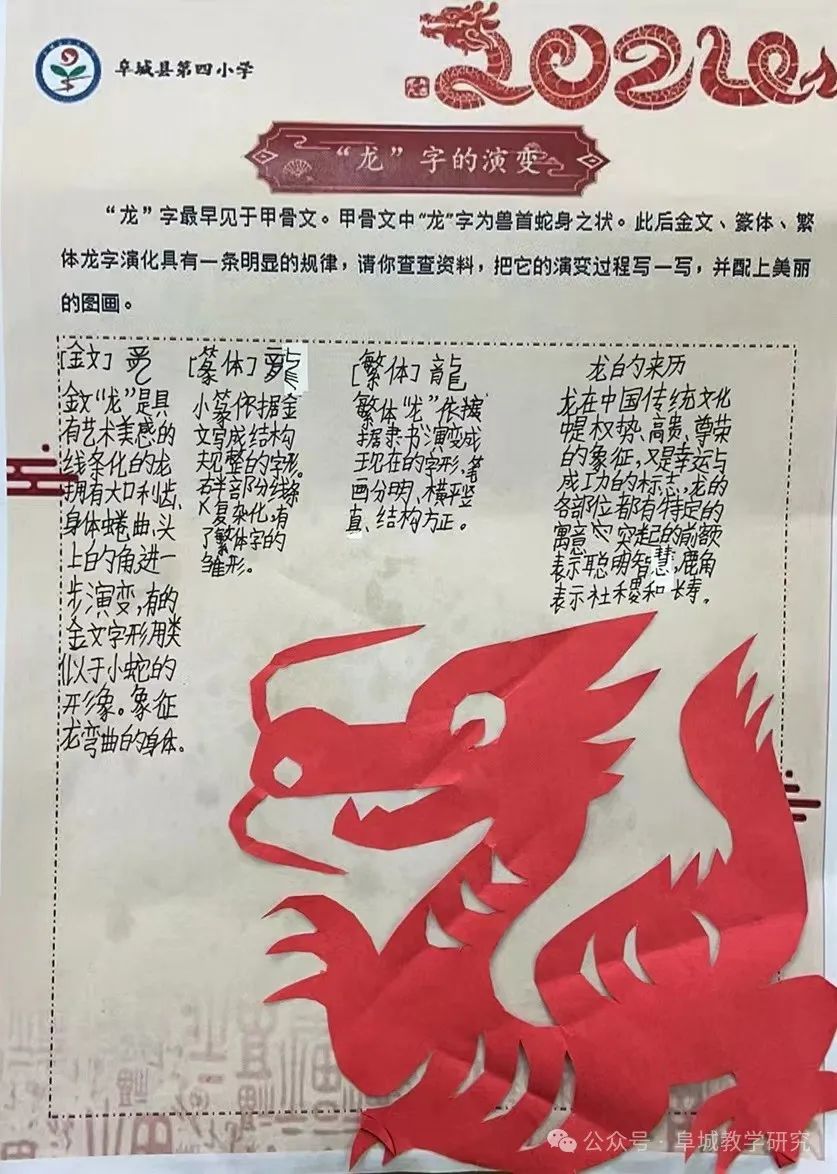 阜城县第四小学
2024
“龙”字的演变
“龙”字最早见于甲骨文。甲骨文中“龙”字为兽首蛇身之状。此后金文、篆体、繁
体龙字演化具有一条明显的规律，请你查查资料，把它的演变过程写一写，并配上美丽
的图画。
[金文]
金文“龙”是具
有艺术美感的
线条化的龙
拥有大口利齿、
身体蜷曲、头
上的角进一
步演变，有的
金文字形用类
似于小蛇的
形象。象征
龙弯曲的身体。
[篆体]
小篆依据金
文写成结构
规整的字形。
右半部分线条
复杂化，有
了繁体字的
雏形。
[繁体] 龍
繁体“龙”依据
据隶书演变成
现在的字形，笔
画分明、横平竖
直、结构方正。
龙的来历
龙在中国传统文化
中是权势、高贵、尊荣
的象征，又是幸运与
成功的标志，龙的
各部位都有特定的
寓意：突起的前额
表示聪明智慧，鹿角
表示社稷和长寿。
公众号·阜城教学研究